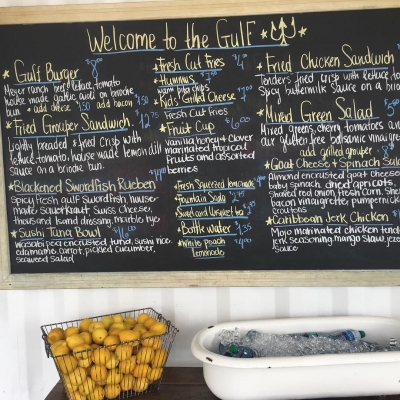 Welcome to the Gulf
Gulf Burger
Meyer ranch beef, lettuce, tomato
house made garlic aioli on brioche
bun add cheese add bacon
Fried Grouper Sandwich
Lightly breaded & fried crisp with
lettuce, tomato, house made lemon dill
sauce on a brioche bun.
Blackened Swordfish Rueben
Spicy fresh gulf swordfish, house
made sauerkraut, Swiss cheese,
thousand island dressing, marble rye
Sushi Tuna Bowl
wasabi pea encrusted tuna, sushi rice,
edamame, carrot, pickled cucumber,
seaweed salad
Fresh Cut Fries $4
Hummus
warm pita chips
Kids Grilled Cheese
Fresh Cut Fries
Fruit Cup
vanilla honey + clover
marinated tropical
fruits and assorted
berries
Fresh Squeezed Lemonade
Fountain Soda
Sweet and Unsweet Tea
Bottle water
White peach
Lemonade
Fried Chicken Sandwich
Tenders fried crisp with lettuce
Spicy buttermilk sauce on a
Mixed Green Salad
Mixed greens, cherry tomatoes
our gluten free balsamic
add grilled grouper
Goat Cheese + Spinach Salad
Almond encrusted goat cheese
baby spinach, dried apricots,
shaved red onion, fresh corn,
bacon vinaigrette, pumpernickel
croutons
Caribbean Jerk Chicken
Mojo marinated chicken
Jerk seasoning, mango slaw,
sauce